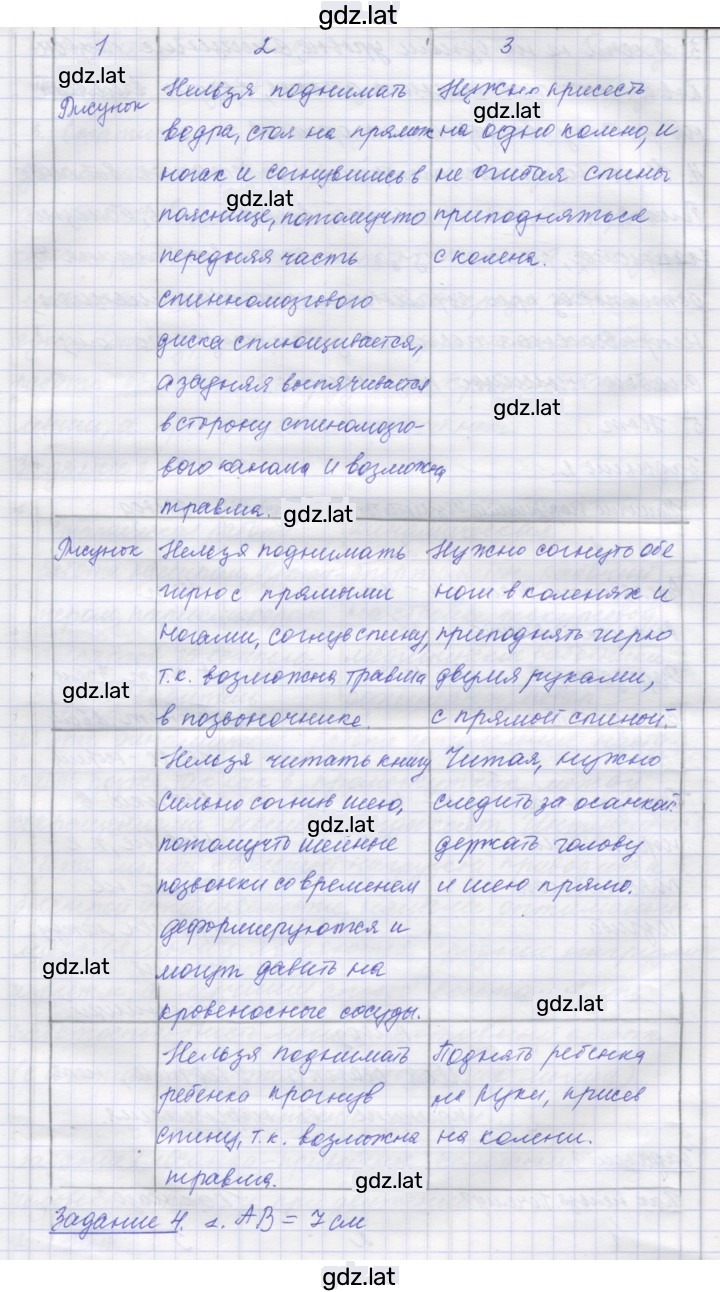 gdz.lat
1 2 3
gdz.lat
Рисунок
Нельзя поднимать
ведра, стоя на прямых
ногах и согнувшись в
gdz.lat
пояснице, потому что
передняя часть
спинномозгового
диска сплющивается,
а задняя выпячивается
в сторону спиномозго-
вого канала и возможна
травма.
gdz.lat
Нужно присесть
gdz.lat
на одно колено, и
не сгибая спины
приподняться
с колена.
gdz.lat
Рисунок
gdz.lat
Нельзя поднимать
гирю с прямыми
ногами, согнув спину,
т.к. возможна травма
в позвоночнике.
Нужно согнуть обе
ноги в коленях и
приподнять гирю
двумя руками,
с прямой спиной.
Нельзя читать книгу
сильно согнув шею,
gdz.lat
потомучто шейные
позвонки со временем
деформируются и
gdz.lat
могут давить на
кровеносные сосуды.
Читая, нужно
следить за осанкой:
держать голову
и шею прямо.
gdz.lat
Нельзя поднимать
ребенка прогнув
спину, т.к. возможна
травма.
Поднять ребенка
на руки, присев
на колени.
gdz.lat
Задание 4. 2. AB = 7 см
gdz.lat